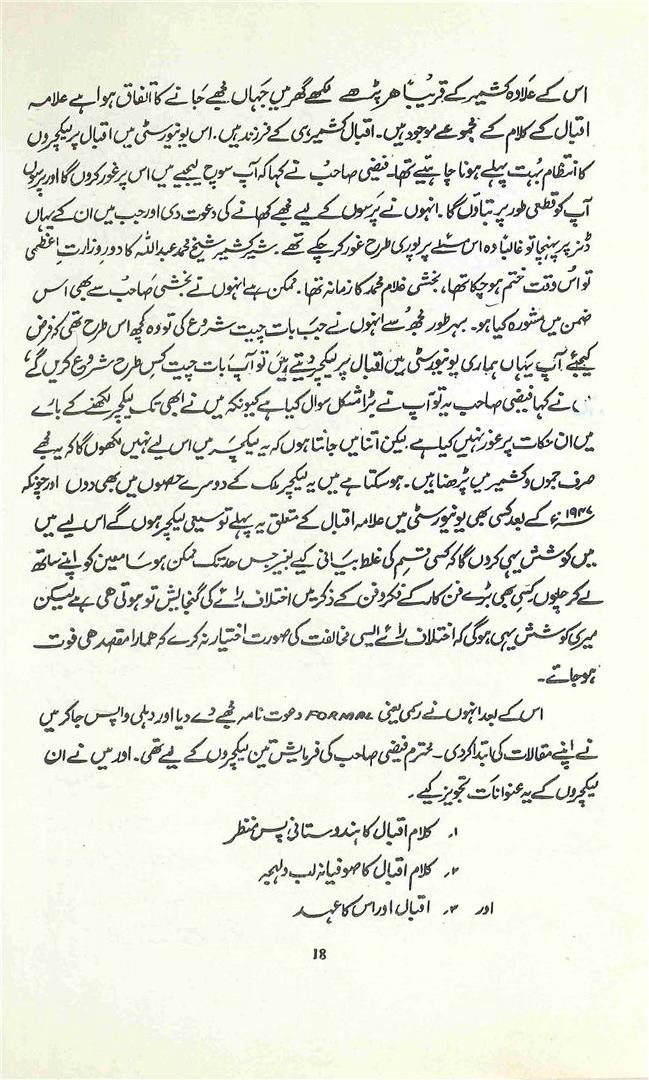 اس کے علاوہ کشمیر کے قریباً ہر پڑھے لکھے گھر میں جہاں مجھے جانے کا اتفاق ہوا ہے علامہ
اقبال کے کلام کے مجموعے موجود ہیں۔ اقبال کشمیر ہی کے فرزند ہیں۔ اس یونیورسٹی میں اقبال پر لیکچروں
کا انتظام بہت پہلے ہونا چاہئیے تھا۔ فیضی صاحب نے کہا کہ آپ سوچ لیجیے میں اس پر غور کروں گا اور پرسوں
آپ کو قطعی طور پر بتاؤں گا۔ انہوں نے پرسوں کے لیے مجھے کھانے کی دعوت دی اور جب میں ان کے یہاں
ڈنر پر پہنچا تو غالباً وہ اس مسئلے پر پوری طرح غور کر چکے تھے۔ شیر کشمیر شیخ محمد عبداللہ کا دور وزارتِ اعظمی
تو اس وقت ختم ہو چکا تھا، بخشی غلام محمد کا زمانہ تھا۔ ممکن ہے انہوں نے بخشی صاحب سے بھی اس
ضمن میں مشورہ کیا ہو۔ بہر طور مجھ سے انہوں نے جب بات چیت شروع کی تو وہ کچھ اس طرح تھی کہ فرض
کیجئے آپ یہاں ہماری یونیورسٹی میں اقبال پر لیکچر دیتے ہیں تو آپ بات چیت کس طرح شروع کریں گے،
نے کہا فیضی صاحب یہ تو آپ نے بڑا مشکل سوال کیا ہے کیونکہ میں نے ابھی تک لیکچر لکھنے کے بارے
میں ان نکات پر غور نہیں کیا ہے لیکن اتنا میں جانتا ہوں کہ یہ لیکچر میں اس لیے نہیں لکھوں گا کہ یہ مجھے
صرف جموں و کشمیر میں پڑھنا ہیں۔ ہو سکتا ہے میں یہ لیکچر ملک کے دوسرے حصوں میں بھی دوں اور چونکہ
۱۹۴۷ء کے بعد کسی بھی یونیورسٹی میں علامہ اقبال کے متعلق یہ پہلے توسیعی لیکچر ہوں گے اس لیے میں
میں کوشش یہی کروں گا کہ کسی قسم کی غلط بیانی کیے بغیر جس حد تک ممکن ہو سامعین کو اپنے ساتھ
لے کر چلوں کسی بھی بڑے فن کار کے فکر و فن کے ذکر میں اختلاف رائے کی گنجایش تو ہوتی ہی ہے لیکن
میری کوشش یہی ہوگی کہ اختلاف رائے ایسی مخالفت کی صورت اختیار نہ کرے کہ ہمارا مقصد ہی فوت
ہو جائے۔
اس کے بعد انہوں نے رسمی یعنی FORMAL دعوت نامہ مجھے دے دیا اور دہلی واپس جا کر میں
نے اپنے مقالات کی ابتدا کر دی۔ محترم فیضی صاحب کی فرمایش تین لیکچروں کے لیے تھی۔ اور میں نے ان
لیکچروں کے یہ عنوانات تجویز کیے۔
۱۔ کلام اقبال کا ہندوستانی پس منظر
۲۔ کلام اقبال کا صوفیانہ لب و لہجہ
اور ۳۔ اقبال اور اس کا عہد
18